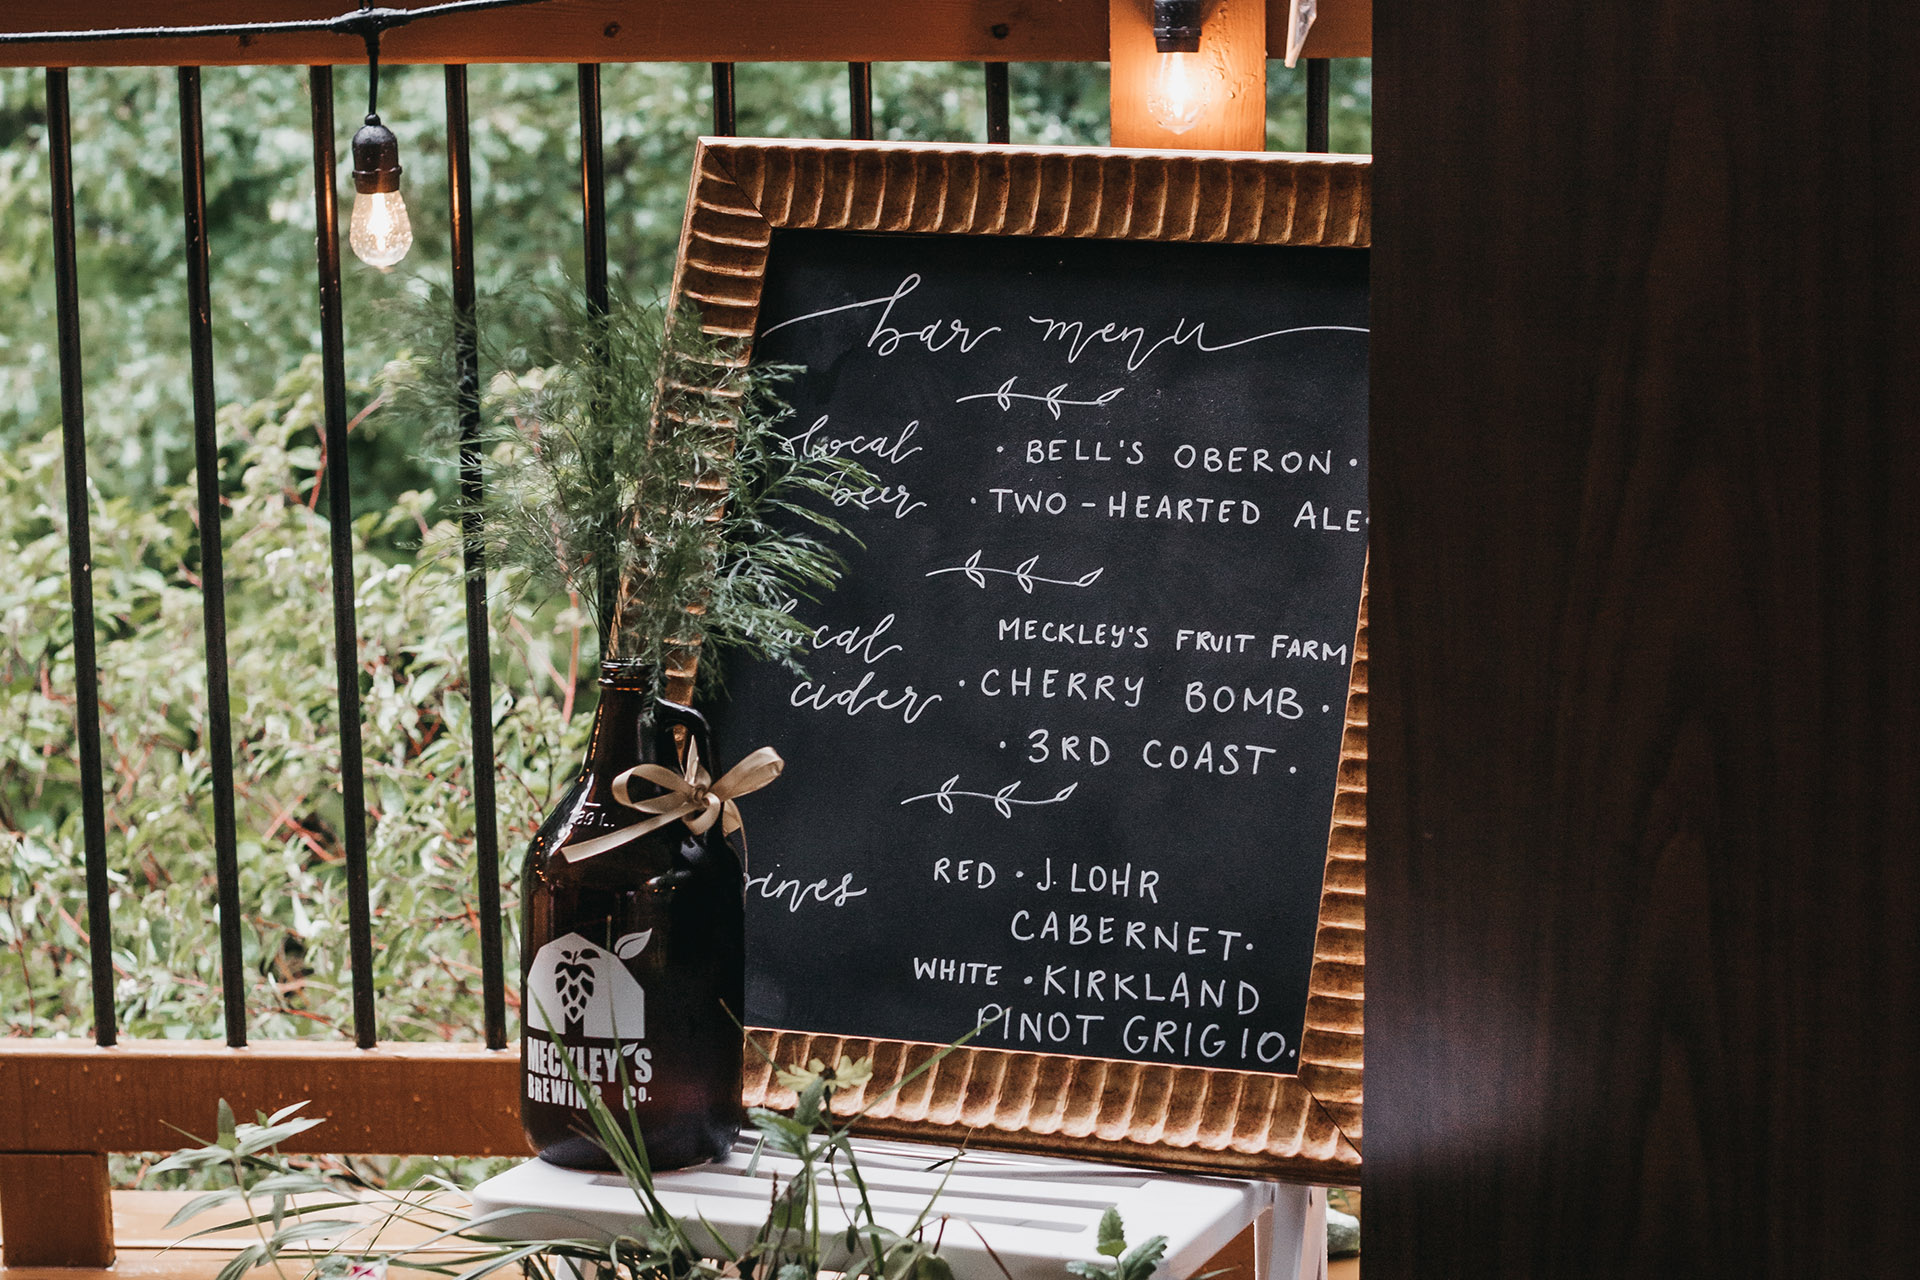 bar menu
local beer
· BELL'S OBERON ·
· TWO-HEARTED ALE·
cider
MECKLEY'S FRUIT FARM
· CHERRY BOMB ·
· 3RD COAST ·
RED · J. LOHR
CABERNET ·
WHITE · KIRKLAND
PINOT GRIGIO ·
MECKLEY'S
BREWING CO.